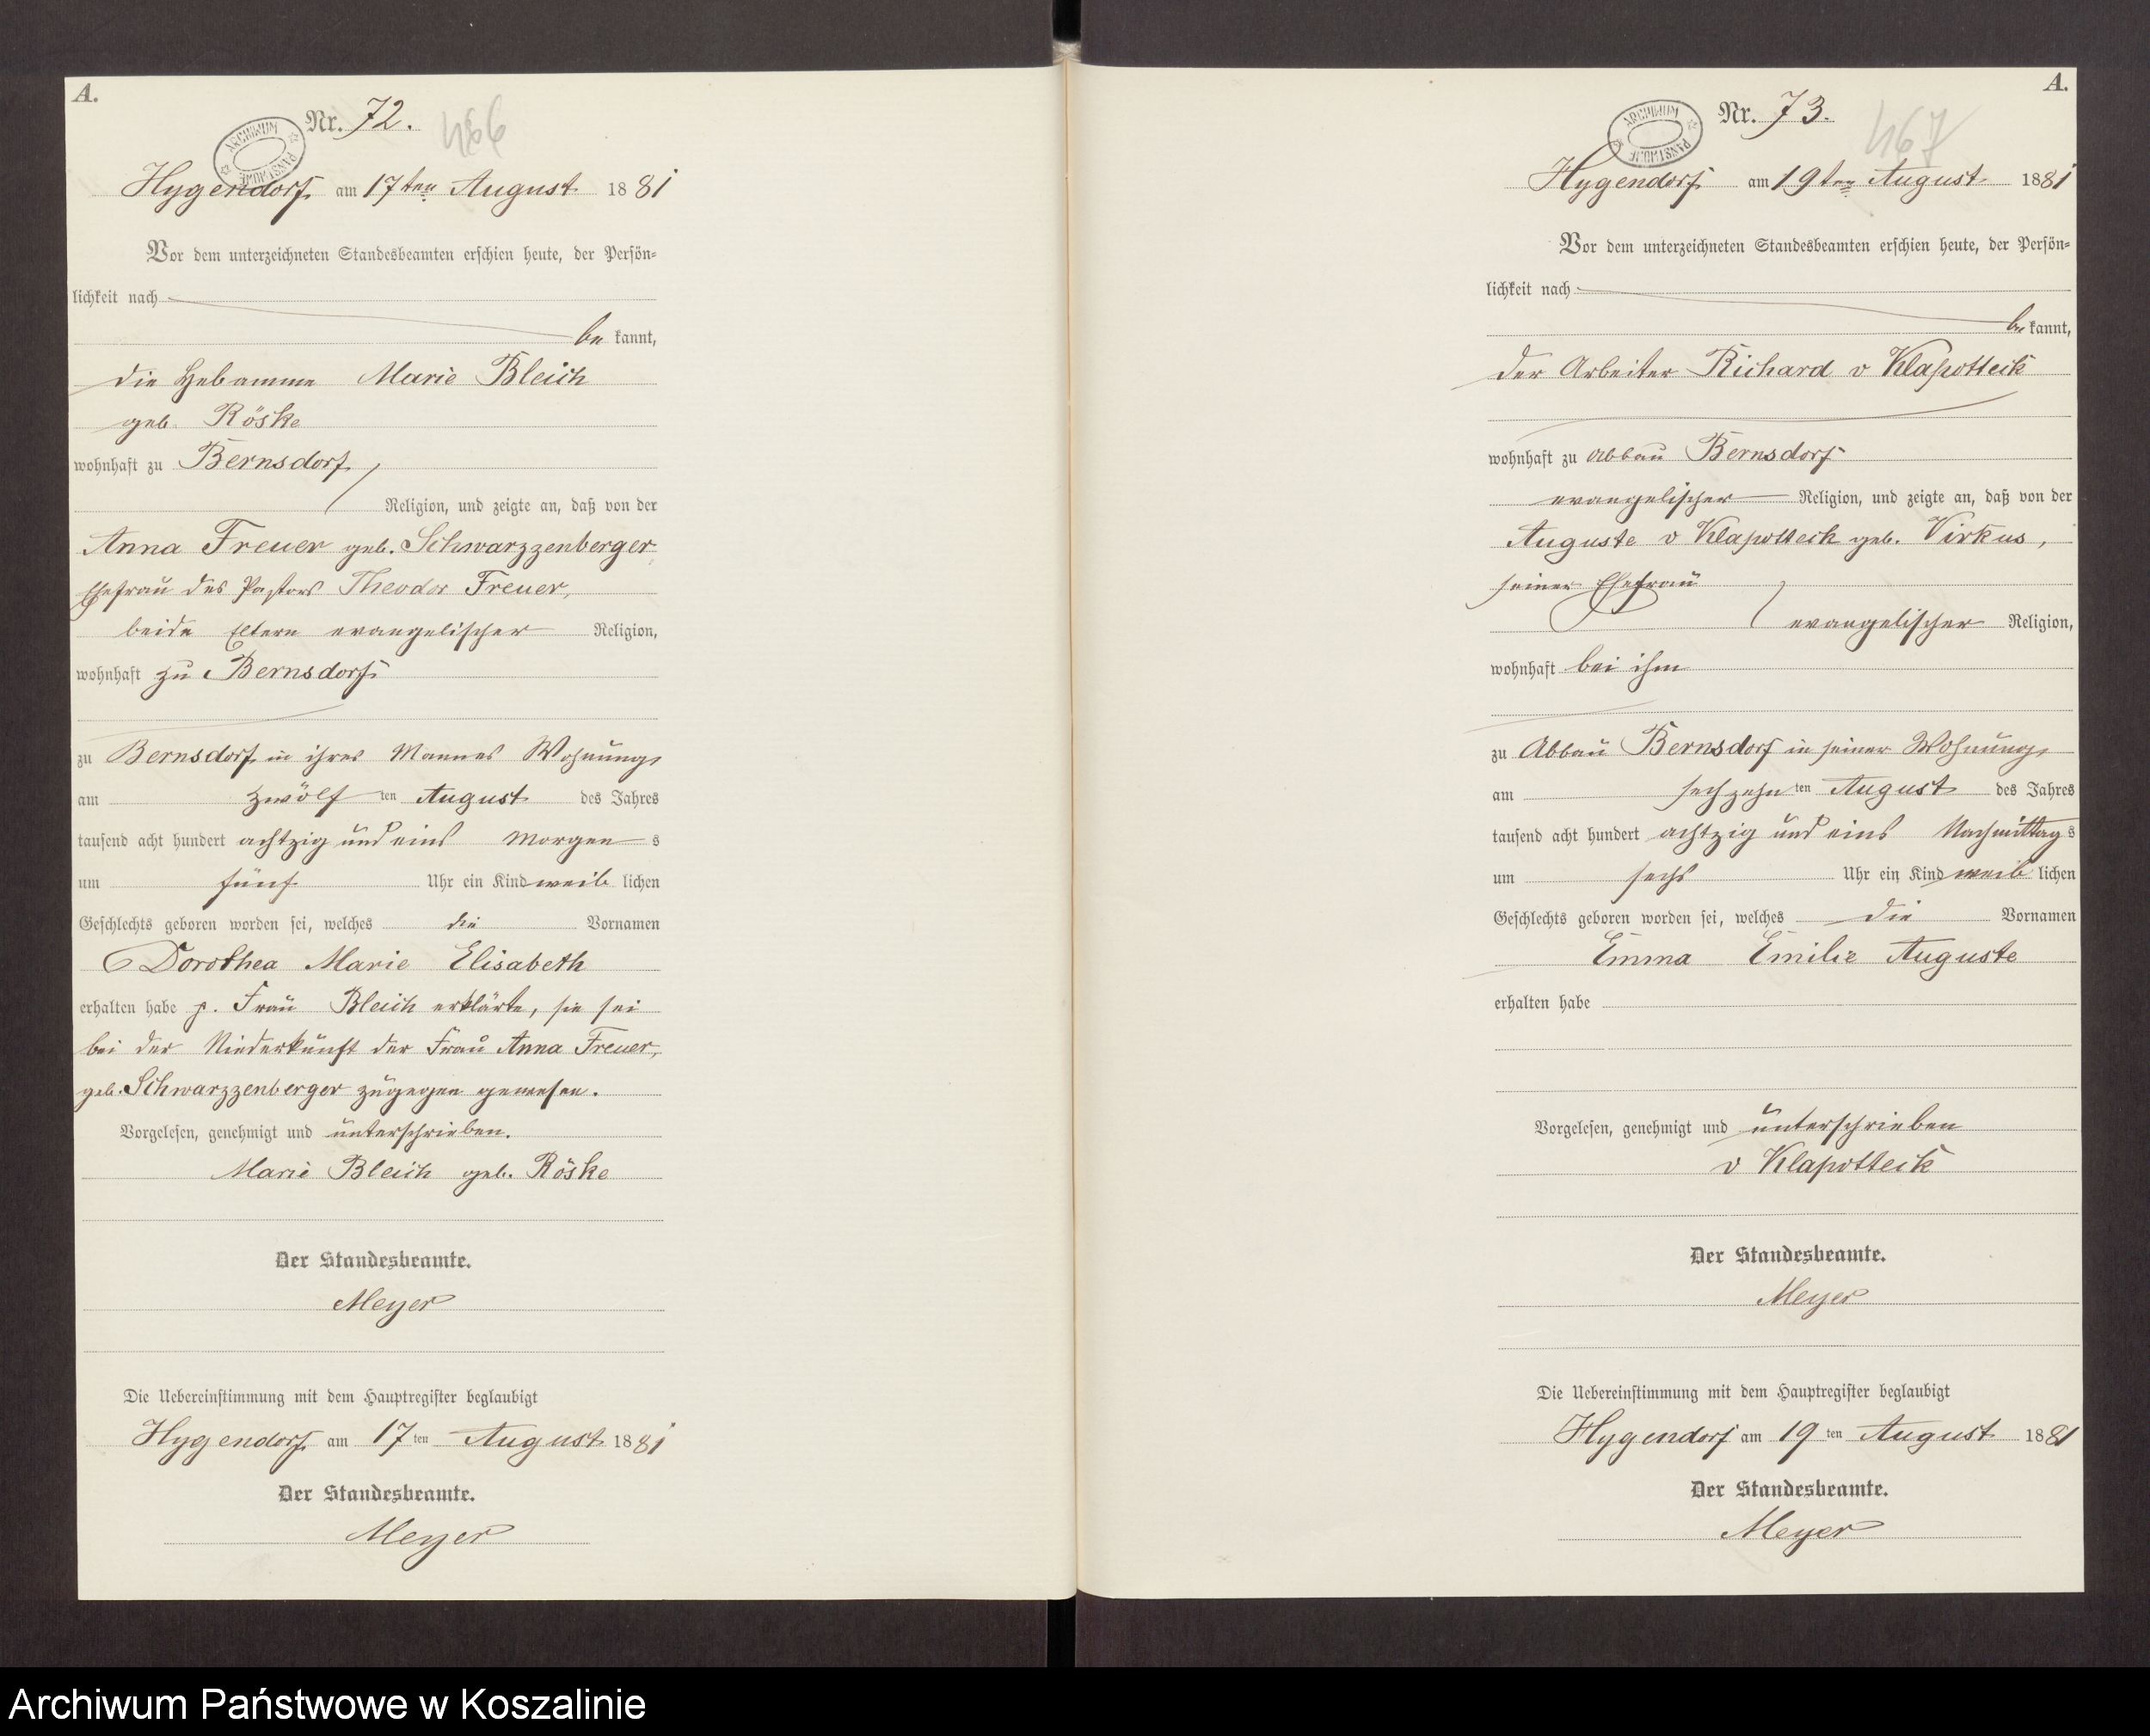 A.
Nr. 72.
466
ARCHIWUM PAŃSTWOWE
Hygendorf am 17ten August 1881
Vor dem unterzeichneten Standesbeamten erschien heute, der Persön-
lichkeit nach
be kannt,
die Hebamme Marie Bleich
geb. Röske
wohnhaft zu Bernsdorf,
Religion, und zeigte an, daß von der
Anna Freuer geb. Schwarzzenberger
Ehefrau des Pastors Theodor Freuer,
beide Eltern evangelischer Religion,
wohnhaft zu Bernsdorf
zu Bernsdorf in ihres Mannes Wohnung,
am zwölf ten August des Jahres
tausend acht hundert achtzig und eins Morgen s
um fünf Uhr ein Kind weib lichen
Geschlechts geboren worden sei, welches die Vornamen
Dorothea Marie Elisabeth
erhalten habe p. Frau Bleich erklärte, sie sei
bei der Niederkunft der Frau Anna Freuer,
geb. Schwarzzenberger zugegen gewesen.
Vorgelesen, genehmigt und unterschrieben.
Marie Bleich geb. Röske
Der Standesbeamte.
Meyer
Die Uebereinstimmung mit dem Hauptregister beglaubigt
Hygendorf am 17 ten August 1881
Der Standesbeamte.
Meyer
A.
Nr. 73.
467
ARCHIWUM PAŃSTWOWE
Hygendorf am 19ten August 1881
Vor dem unterzeichneten Standesbeamten erschien heute, der Persön-
lichkeit nach
be kannt,
der Arbeiter Richard v Klapotteck
wohnhaft zu Abbau Bernsdorf
evangelischer Religion, und zeigte an, daß von der
Auguste v Klapotteck geb. Virkus,
seiner Ehefrau
evangelischer Religion,
wohnhaft bei ihm
zu Abbau Bernsdorf in seiner Wohnung,
am sechzehn ten August des Jahres
tausend acht hundert achtzig und eins Nachmittag s
um sechs Uhr ein Kind weib lichen
Geschlechts geboren worden sei, welches die Vornamen
Emma Emilie Auguste
erhalten habe
Vorgelesen, genehmigt und unterschrieben
v Klapotteck
Der Standesbeamte.
Meyer
Die Uebereinstimmung mit dem Hauptregister beglaubigt
Hygendorf am 19 ten August 1881
Der Standesbeamte.
Meyer
Archiwum Państwowe w Koszalinie